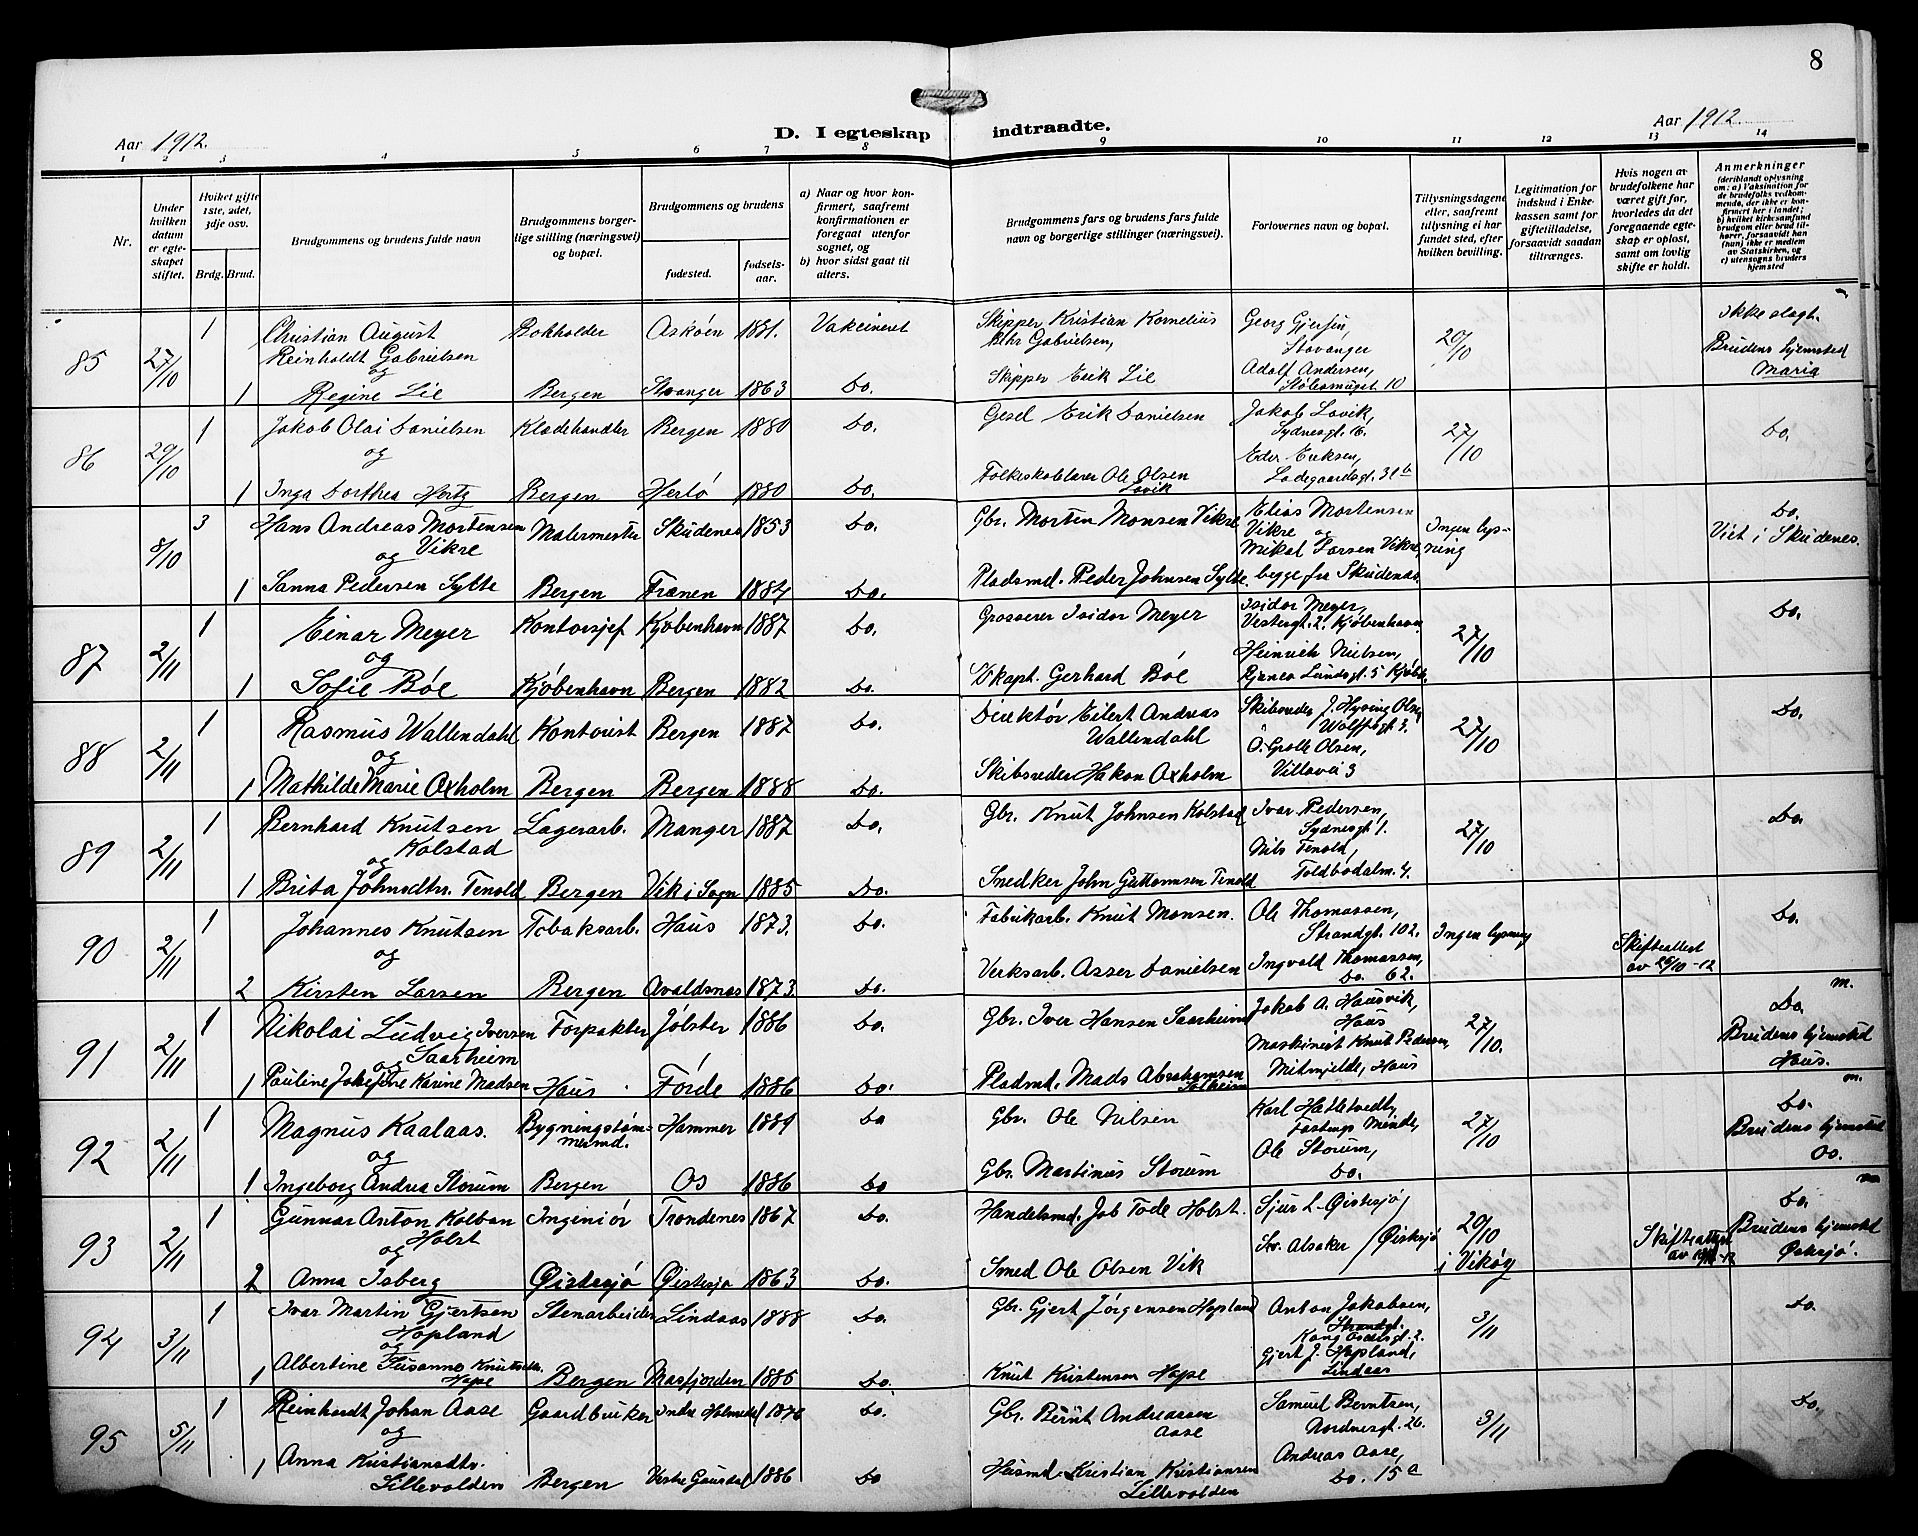 8
Aar 1912.
D. I egteskap indtraadte.
Aar 1912.
1 2 3 4 5 6 7 8 9 10 11 12 13 14
Nr.
Under hvilken datum er egteskapet stiftet.
Hvilket gifte 1ste, 2det, 3dje osv.
Brdg. Brud.
Brudgommens og brudens fulde navn
Brudgommens borgerlige stilling (næringsvei) og bopæl.
Brudgommens og brudens
fødested.
fødselsaar.
a) Naar og hvor konfirmert, saafremt konfirmationen er foregaat utenfor sognet, og
b) hvor sidst gaat til alters.
Brudgommens fars og brudens fars fulde navn og borgerlige stillinger (næringsvei).
Forlovernes navn og bopæl.
Tillysningsdagene eller, saafremt tillysning ei har fundet sted, efter hvilken bevilling.
Legitimation for indskud i Enkekassen samt for giftetilladelse, forsaavidt saadan tiltrænges.
Hvis nogen av brudefolkene har været gift for, hvorledes da det foregaaende egteskap er opløst, samt om lovlig skifte er holdt.
Anmerkninger
(deriblandt oplysning om: a) Vaksination for de brudefolks vedkommende, der ikke er konfirmert her i landet; b) hvilket kirkesamfund brudgom eller brud tilhører, forsaavidt han (hun) ikke er medlem av Statskirken, og c) utensogns bruders hjemsted
85 27/10 1 Christian August Reinholdt Gabrielsen Bokholder Askøen 1881. Vakcineret Skipper Kristian Kornelius Gabrielsen, Georg Gjersen, Stavanger 20/10 ikke slegt.
og
1 Regine Lie Bergen Stvanger 1863 Do. Skipper Erik Lie Adolf Andersen, Stølesmuget 10 Brudens hjemsted Maria
86 29/10 1 Jakob Olai Danielsen Klædehandler Bergen 1880 Do. Gesel Erik Danielsen Jakob Lovik, Sydnesgt. 16. 27/10 Do.
og
1 Inga Dorthea Hertz Bergen Herlø 1880 Do. Folkeskolelærer Ole Olsen Lovik Eder Eriksen, Ladegaardsgt. 31 b
8/10 3 Hans Andreas Mortensen Vikre Malermester Skudenes 1853 Do. Gbr. Morten Monsen Vikre Elias Mortensen Vikre og Ingen lysning Do.
og
1 Sanna Pedersen Sylte Bergen Frænen 1884 Do. Pladsmd. Peder Johnsen Sylte. Mikal Larsen Vikre, begge fra Skudenes. Viet i Skudenes.
87 2/11 1 Einar Meyer Kontorsjef Kjøbenhavn 1887 Do. Grosserer Isidor Meyer Isidor Meyer, Vestergt. 2. Kjøbenhavn 27/10 Do.
og
1 Sofie Bøe Kjøbenhavn Bergen 1882 Do. Skapt. Gerhard Bøe Heinrich Nielsen,
88 2/11 1 Rasmus Wallendahl Kontorist Bergen 1887 Do. Direktør Eilert Andreas Wallendahl Skibsreder J. Hysing Olsen Wolffsgt. 3. 27/10 Do.
og
1 Mathilde Marie Oxholm Bergen Bergen 1888 Do. Skibsreder Hakon Oxholm O. Grolle Olsen, Villavei 3
89 2/11 1 Bernhard Knutsen Kolstad Lagerarb. Manger 1887 Do. Gbr. Knut Johnsen Kolstad Ivar Pedersen, Sydnesgt. 1. 27/10 Do.
og
1 Brita Johnsdtr. Tenold Bergen Vik i Sogn 1885 Do. Snedker John Guttormsen Tenold Nils Tenold, Toldbodalm. 4.
90 2/11 1 Johannes Knutsen Tobaksarb. Haus 1873. Do. Fabrikarb. Knut Monsen. Ole Thomassen, Strandgt. 102. Ingen lysning Skifteattest av 26/10-12 Do.
og
2 Kirsten Larsen Bergen Avaldsnæs 1873. Do. Verksarb. Asser Danielsen Ingvald Thomassen, Do. 62.
m.
91 2/11 1 Nikolai Ludvig Iversen Saarheim Forpakter Jølster 1886 Do. Gbr. Iver Hansen Saarheim Jakob A. Hausvik, Haus 27/10. Do.
og
1 Pauline Josefine Karine Madsen Haus Førde 1886 Do. Pladsmd. Mads Abrahamsen Solheim Maskinist Knut Pedersen, Mitmjelde, Haus Brudens hjemsted Haus.
m.
92 2/11 1 Magnus Kaalaas. Bygningstømmermd. Hammer 1889 Do Gbr. Ole Nilsen Karl Hatletvedt, Fastings Minde, 27/10 Do.
og
1 Ingeborg Andrea Storum Bergen Os 1886 Do Gbr. Martinus Storum Ole Storum, Do. Brudens hjemsted Os.
m
93 2/11 1 Gunnar Anton Kolban Holst Ingeniør Trondenes 1867 Do. Handelsmd. Job Tode Holst. Sjur L. Øistesjø 20/10 i Vikøy Do.
og
2 Anna Isberg Øistesjø Øistesjø 1863 Do. Smed Ole Olsen Vik Sv. Alsaker / Øistesjø Skifteattest Brudens hjemsted
94 3/11 1 Ivar Martin Gjertsen Hopland Stenarbeider Lindaas 1888 Do. Gbr. Gjert Jørgensen Hopland Anton Jakobsen, Strandgt. Kong Oscarsgt. 2. 3/11 Do.
og
1 Albertine Susanne Knutsdtr. Hope Bergen Masfjorden 1885 Do. Knut Kristensen Hope Gjert J. Hopland, Lindaas
95 5/11 1 Reinhardt Johan Aase Gaardbruker Indre Holmedal 1876 Do. Gbr. Bernt Andreassen Aase Samuel Berntsen, Nordnesgt. 26. 3/11 Do.
og
1 Anna Kristiansdtr. Lillevolden Bergen Vestre Gausdal 1886 Do Husmd. Kristian Kristiansen Lillevolden Andreas Aase, Do. 15 a